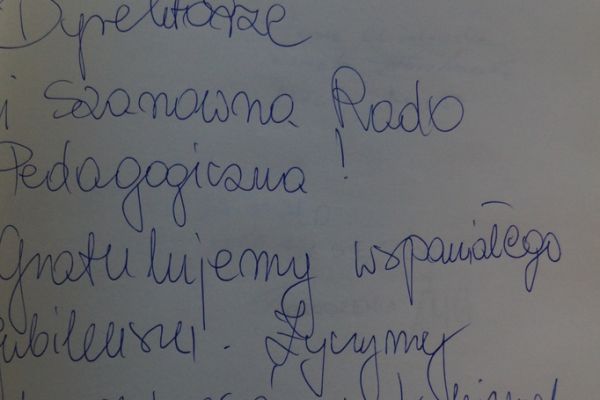 Dyrektorze
i Szanowna Rado
Pedagogiczna!
Gratulujemy wspaniałego
jubileuszu. Życzymy